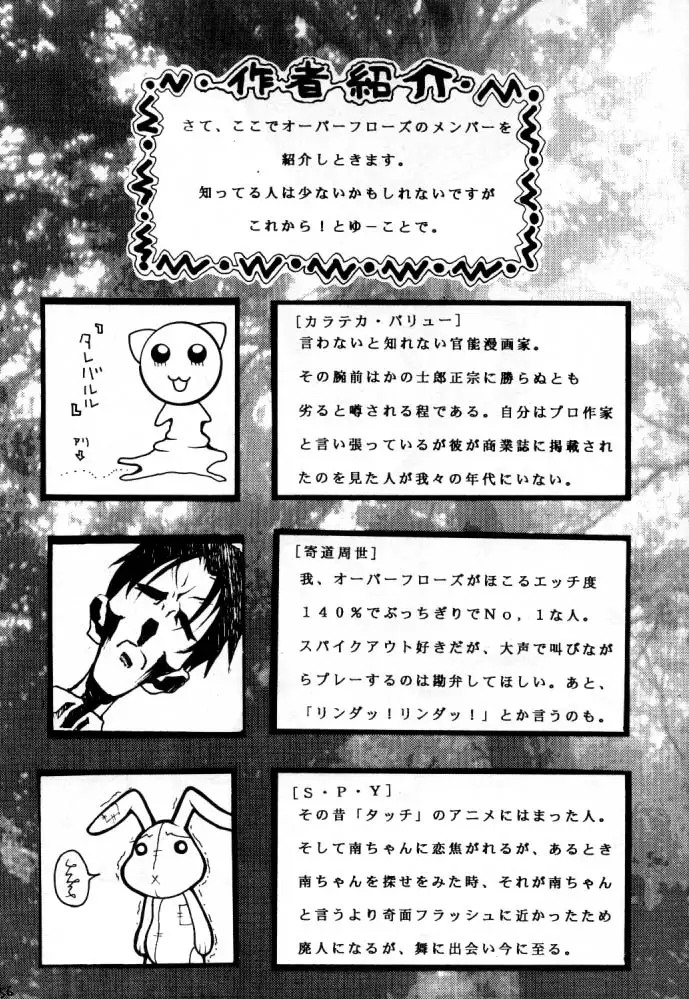 作者紹介
さて、ここでオーバーフローズのメンバーを
紹介しときます。
知ってる人は少ないかもしれないですが
これから！とゆーことで。
『タレバルル』
アリ
[カラテカ・バリュー]
言わないと知れない官能漫画家。
その腕前はかの士郎正宗に勝らぬとも
劣ると噂される程である。自分はプロ作家
と言い張っているが彼が商業誌に掲載され
たのを見た人が我々の年代にいない。
[寄道周世]
我、オーバーフローズがほこるエッチ度
140%でぶっちぎりでNo,1な人。
スパイクアウト好きだが、大声で叫びなが
らプレーするのは勘弁してほしい。あと、
「リンダッ！リンダッ！」とか言うのも。
[S・P・Y]
その昔「タッチ」のアニメにはまった人。
そして南ちゃんに恋焦がれるが、あるとき
南ちゃんを探せをみた時、それが南ちゃん
と言うより奇面フラッシュに近かったため
廃人になるが、舞に出会い今に至る。
56